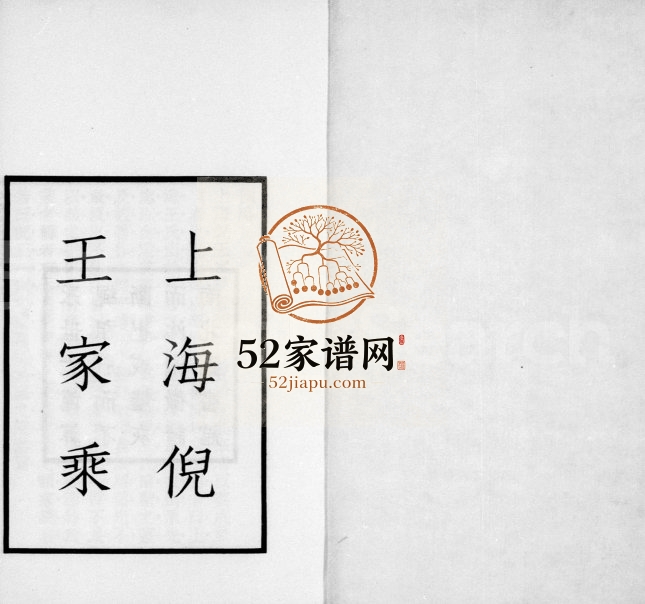 上海倪
王家乘
52家谱网
52jiapu.com